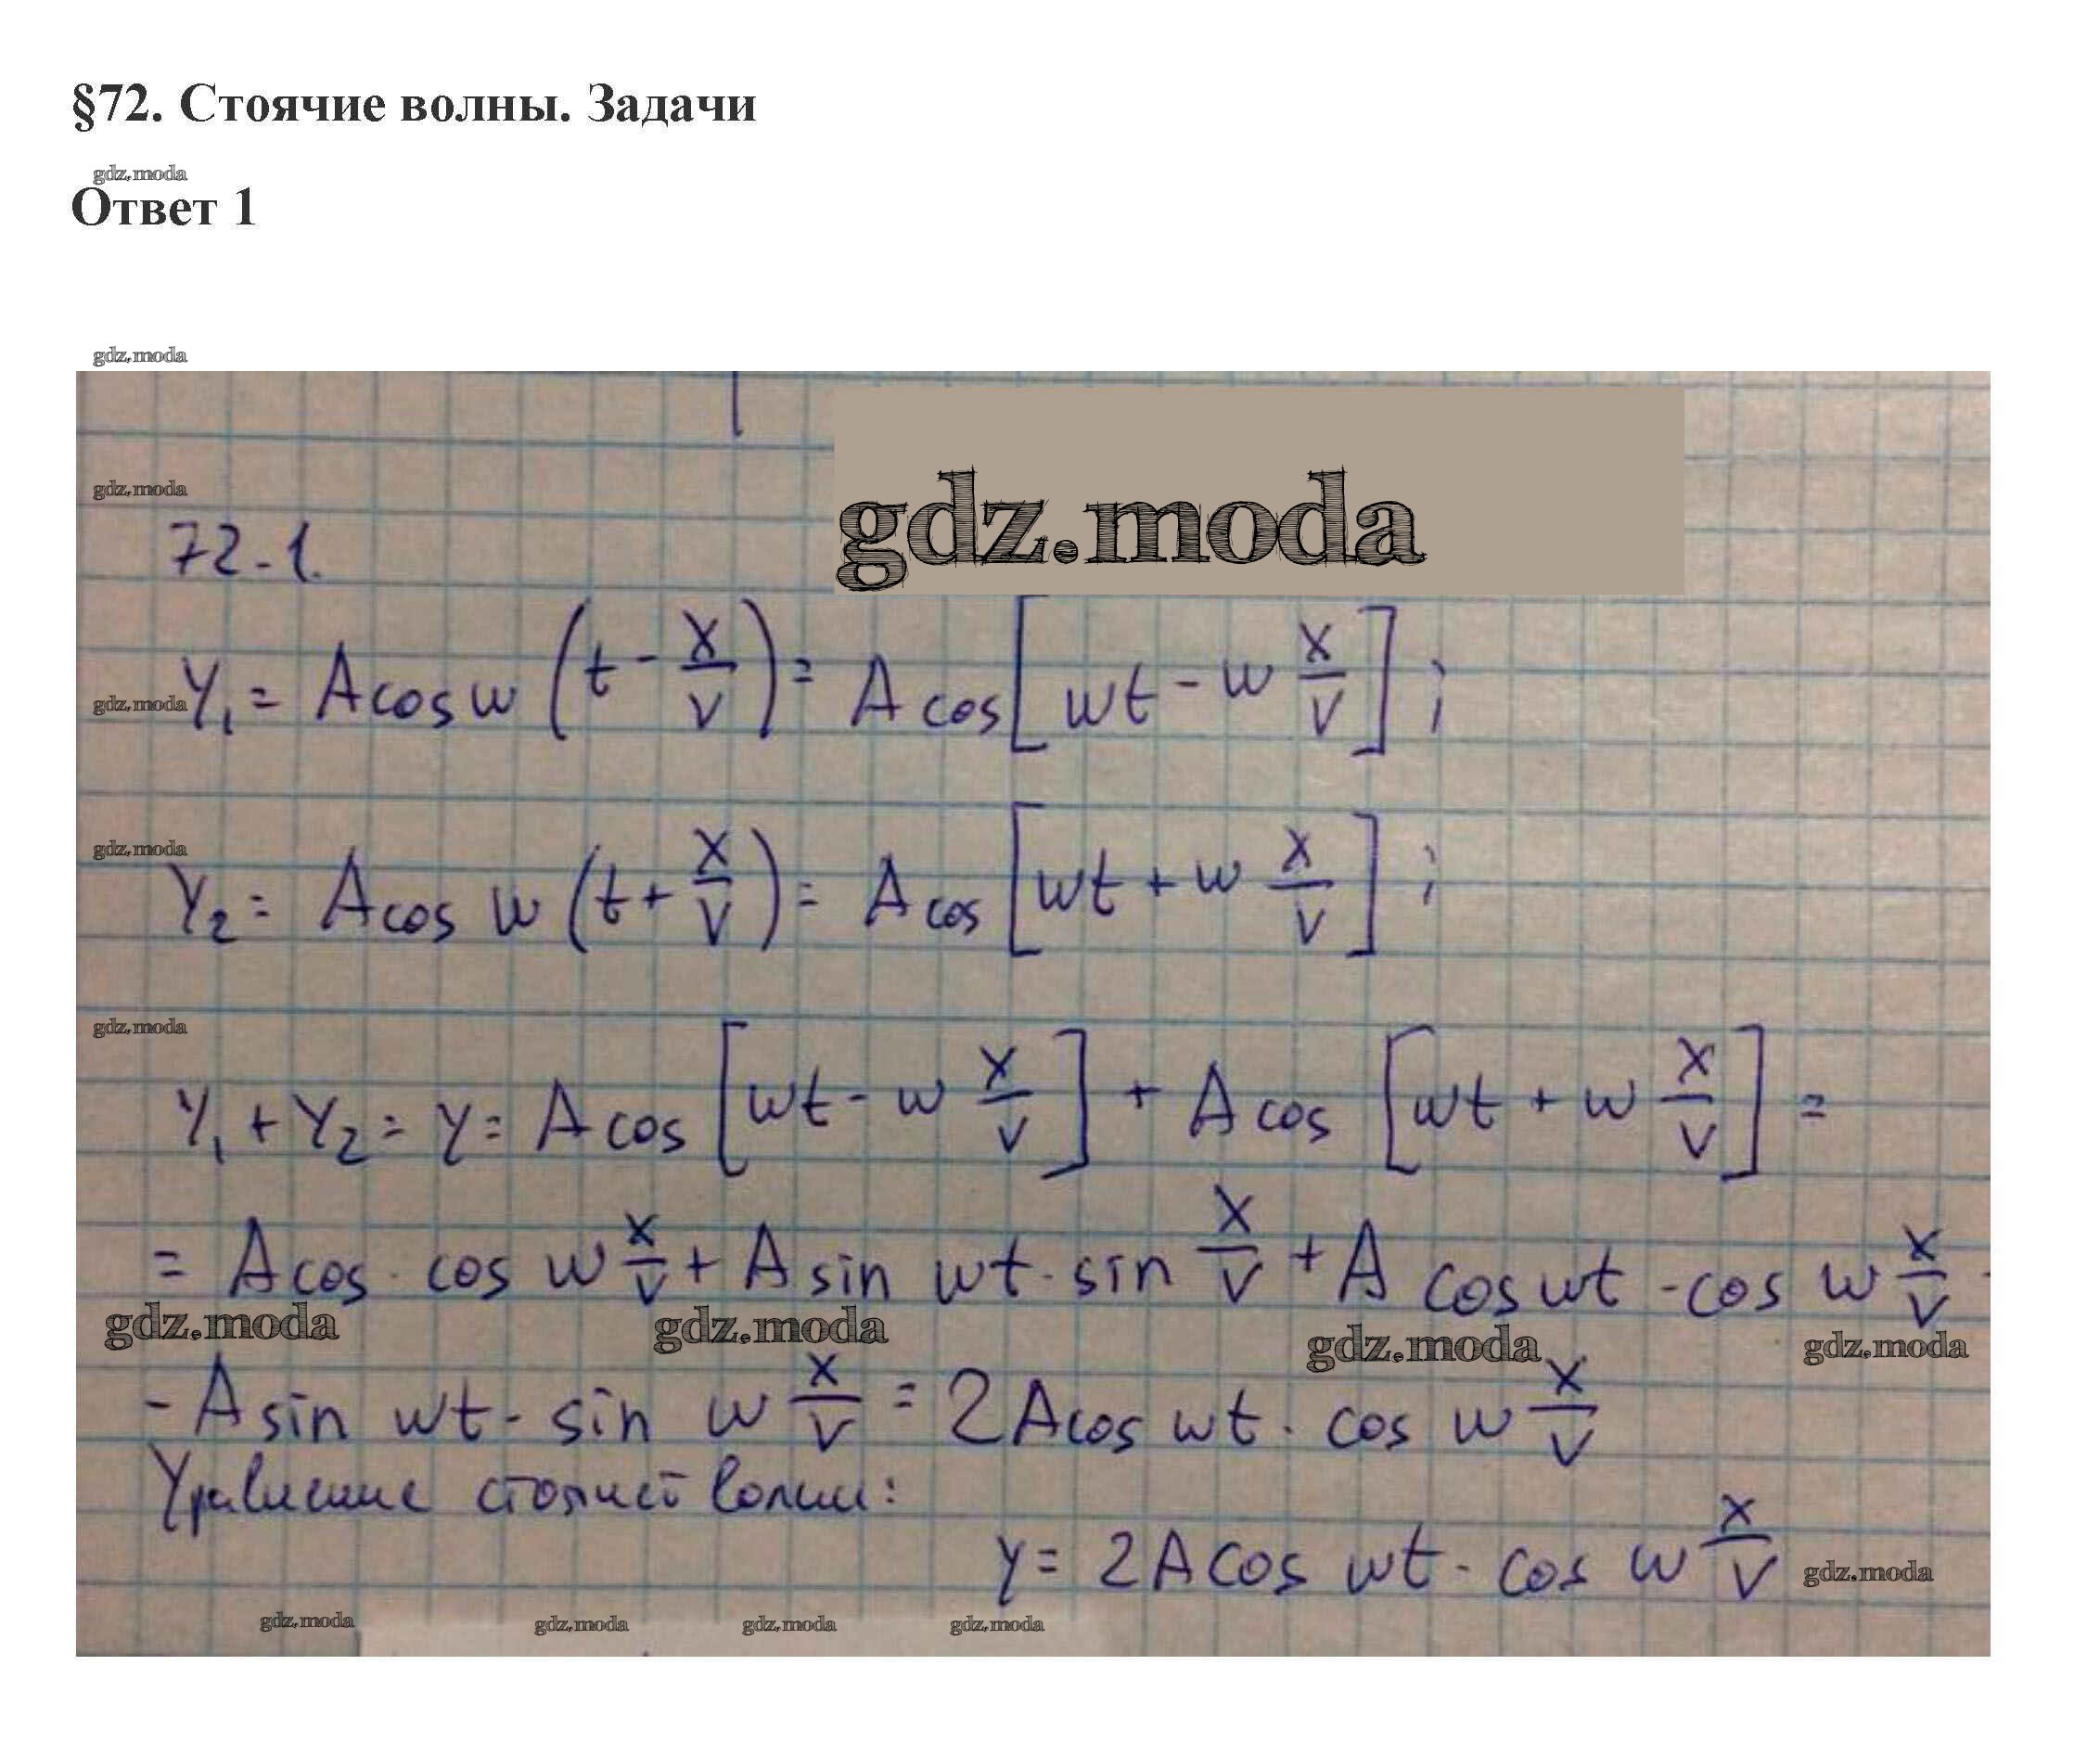 §72. Стоячие волны. Задачи
gdz.moda
Ответ 1
gdz.moda
gdz.moda
gdz.moda
72-1.
gdz.moda
Y₁ = A cos w (t - x/v) = A cos [wt - w x/v] ;
gdz.moda
Y₂ = A cos w (t + x/v) = A cos [wt + w x/v] ;
gdz.moda
Y₁ + Y₂ = y = A cos [wt - w x/v] + A cos [wt + w x/v] =
= A cos · cos w x/v + A sin wt · sin x/v + A cos wt · cos w x/v -
gdz.moda gdz.moda gdz.moda gdz.moda
- A sin wt · sin w x/v = 2A cos wt · cos w x/v
Уравнение стоячей волны:
y = 2A cos wt · cos w x/v
gdz.moda
gdz.moda gdz.moda gdz.moda gdz.moda